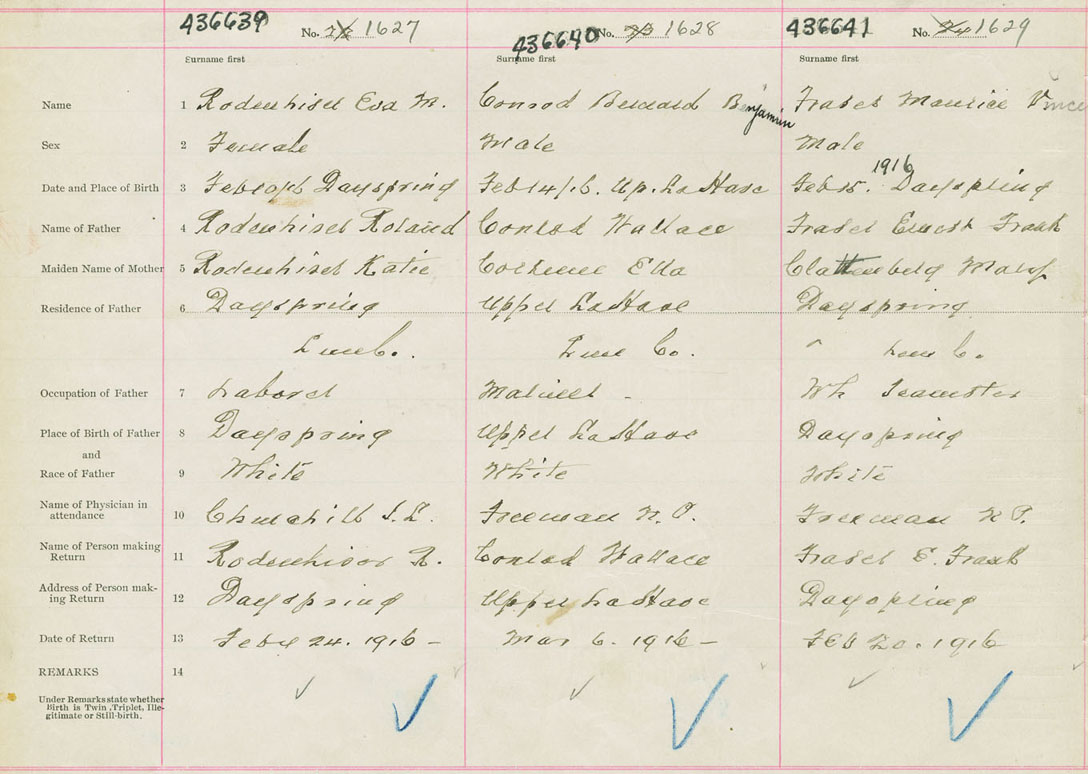 436639 No. 1627 436640 No. 1628 436641 No. 1629
Surname first Surname first Surname first
Name 1 Rodenhiser Eva M. Conrod Bernard Benjamin Fraser Maurice Vince
Sex 2 Female Male Male
Date and Place of Birth 3 Dayspring Feb 14/16. Up. LaHave Feb 15. 1916 Dayspring
Name of Father 4 Rodenhiser Roland Conrod Wallace Fraser Ernest Frank
Maiden Name of Mother 5 Rodenhiser Katie Ella Clattenberg
Residence of Father 6 Dayspring Upper LaHave Dayspring
Lun Co. Lun Co. " Lun Co.
Occupation of Father 7 Laborer Mariner - Teamster
Place of Birth of Father 8 Dayspring Upper LaHave Dayspring
and
Race of Father 9 White White White
Name of Physician in
attendance 10 Churchill Freeman N. P. Freeman N P.
Name of Person making
Return 11 Rodenhiser R. Conrod Wallace Fraser E. Frank
Address of Person mak-
ing Return 12 Dayspring Upper LaHave Dayspring
Date of Return 13 Feby 24. 1916 - Mar 6. 1916 - Feb 20. 1916
REMARKS 14
Under Remarks state whether
Birth is Twin, Triplet, Ille-
gitimate or Still-birth.